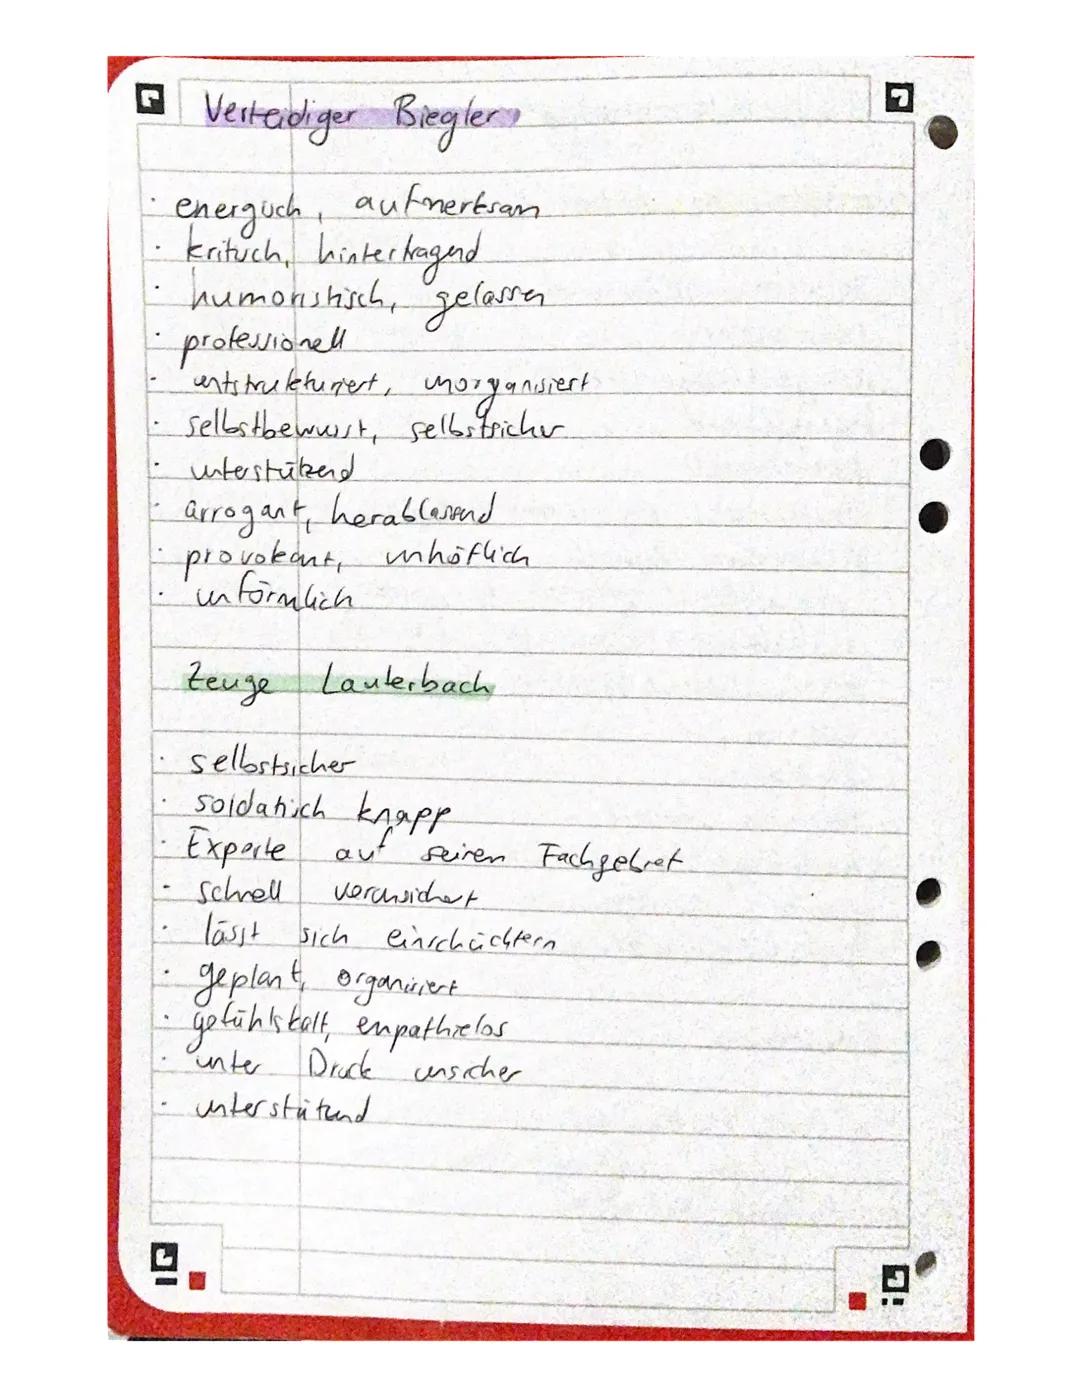 Verteidiger Biegler
· energisch, aufmerksam
· kritisch, hinterfragend
· humoristisch, gelassen
· professionell
· unstrukturiert, unorganisiert
· selbstbewusst, selbstsicher
· unterstützend
· arrogant, herablassend
· provokant, unhöflich
· unförmlich
Zeuge Lauterbach
· selbstsicher
· soldatisch knapp
· Experte auf seinem Fachgebiet
· schnell verunsichert
· lässt sich einschüchtern
· geplant, organisiert
· gefühlskalt, empathielos
· unter Druck unsicher
· unterstützend